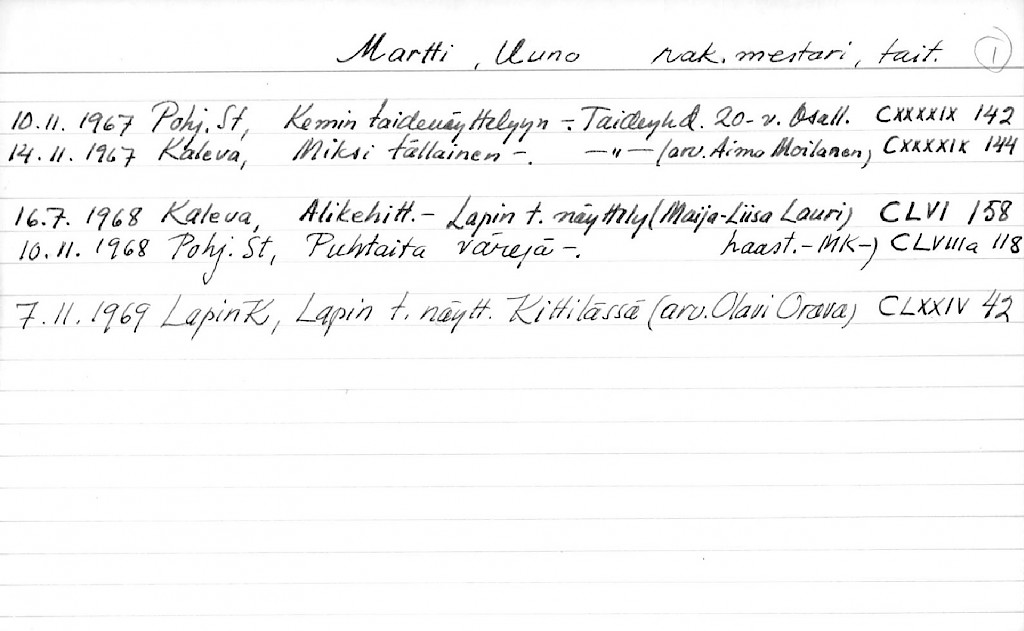 Martti, Uuno rak.mestari, tait. 1
10.11.1967 Pohj.St, Kemin taidenäyttelyyn -. Taideyhd. 20-v. Osall. CXXXXIX 142
14.11.1967 Kaleva, Miksi tällainen -. —"— (arv. Aimo Moilanen) CXXXXIX 144
16.7. 1968 Kaleva, Alikehitt.- Lapin t. näyttely (Maija-Liisa Lauri) CLVI 158
10.11.1968 Pohj.St, Puhtaita värejä -. haast.-MK-) CLVIIIa 118
7.11.1969 LapinK, Lapin t. näytt. Kittilässä (arv. Olavi Orava) CLXXIV 42